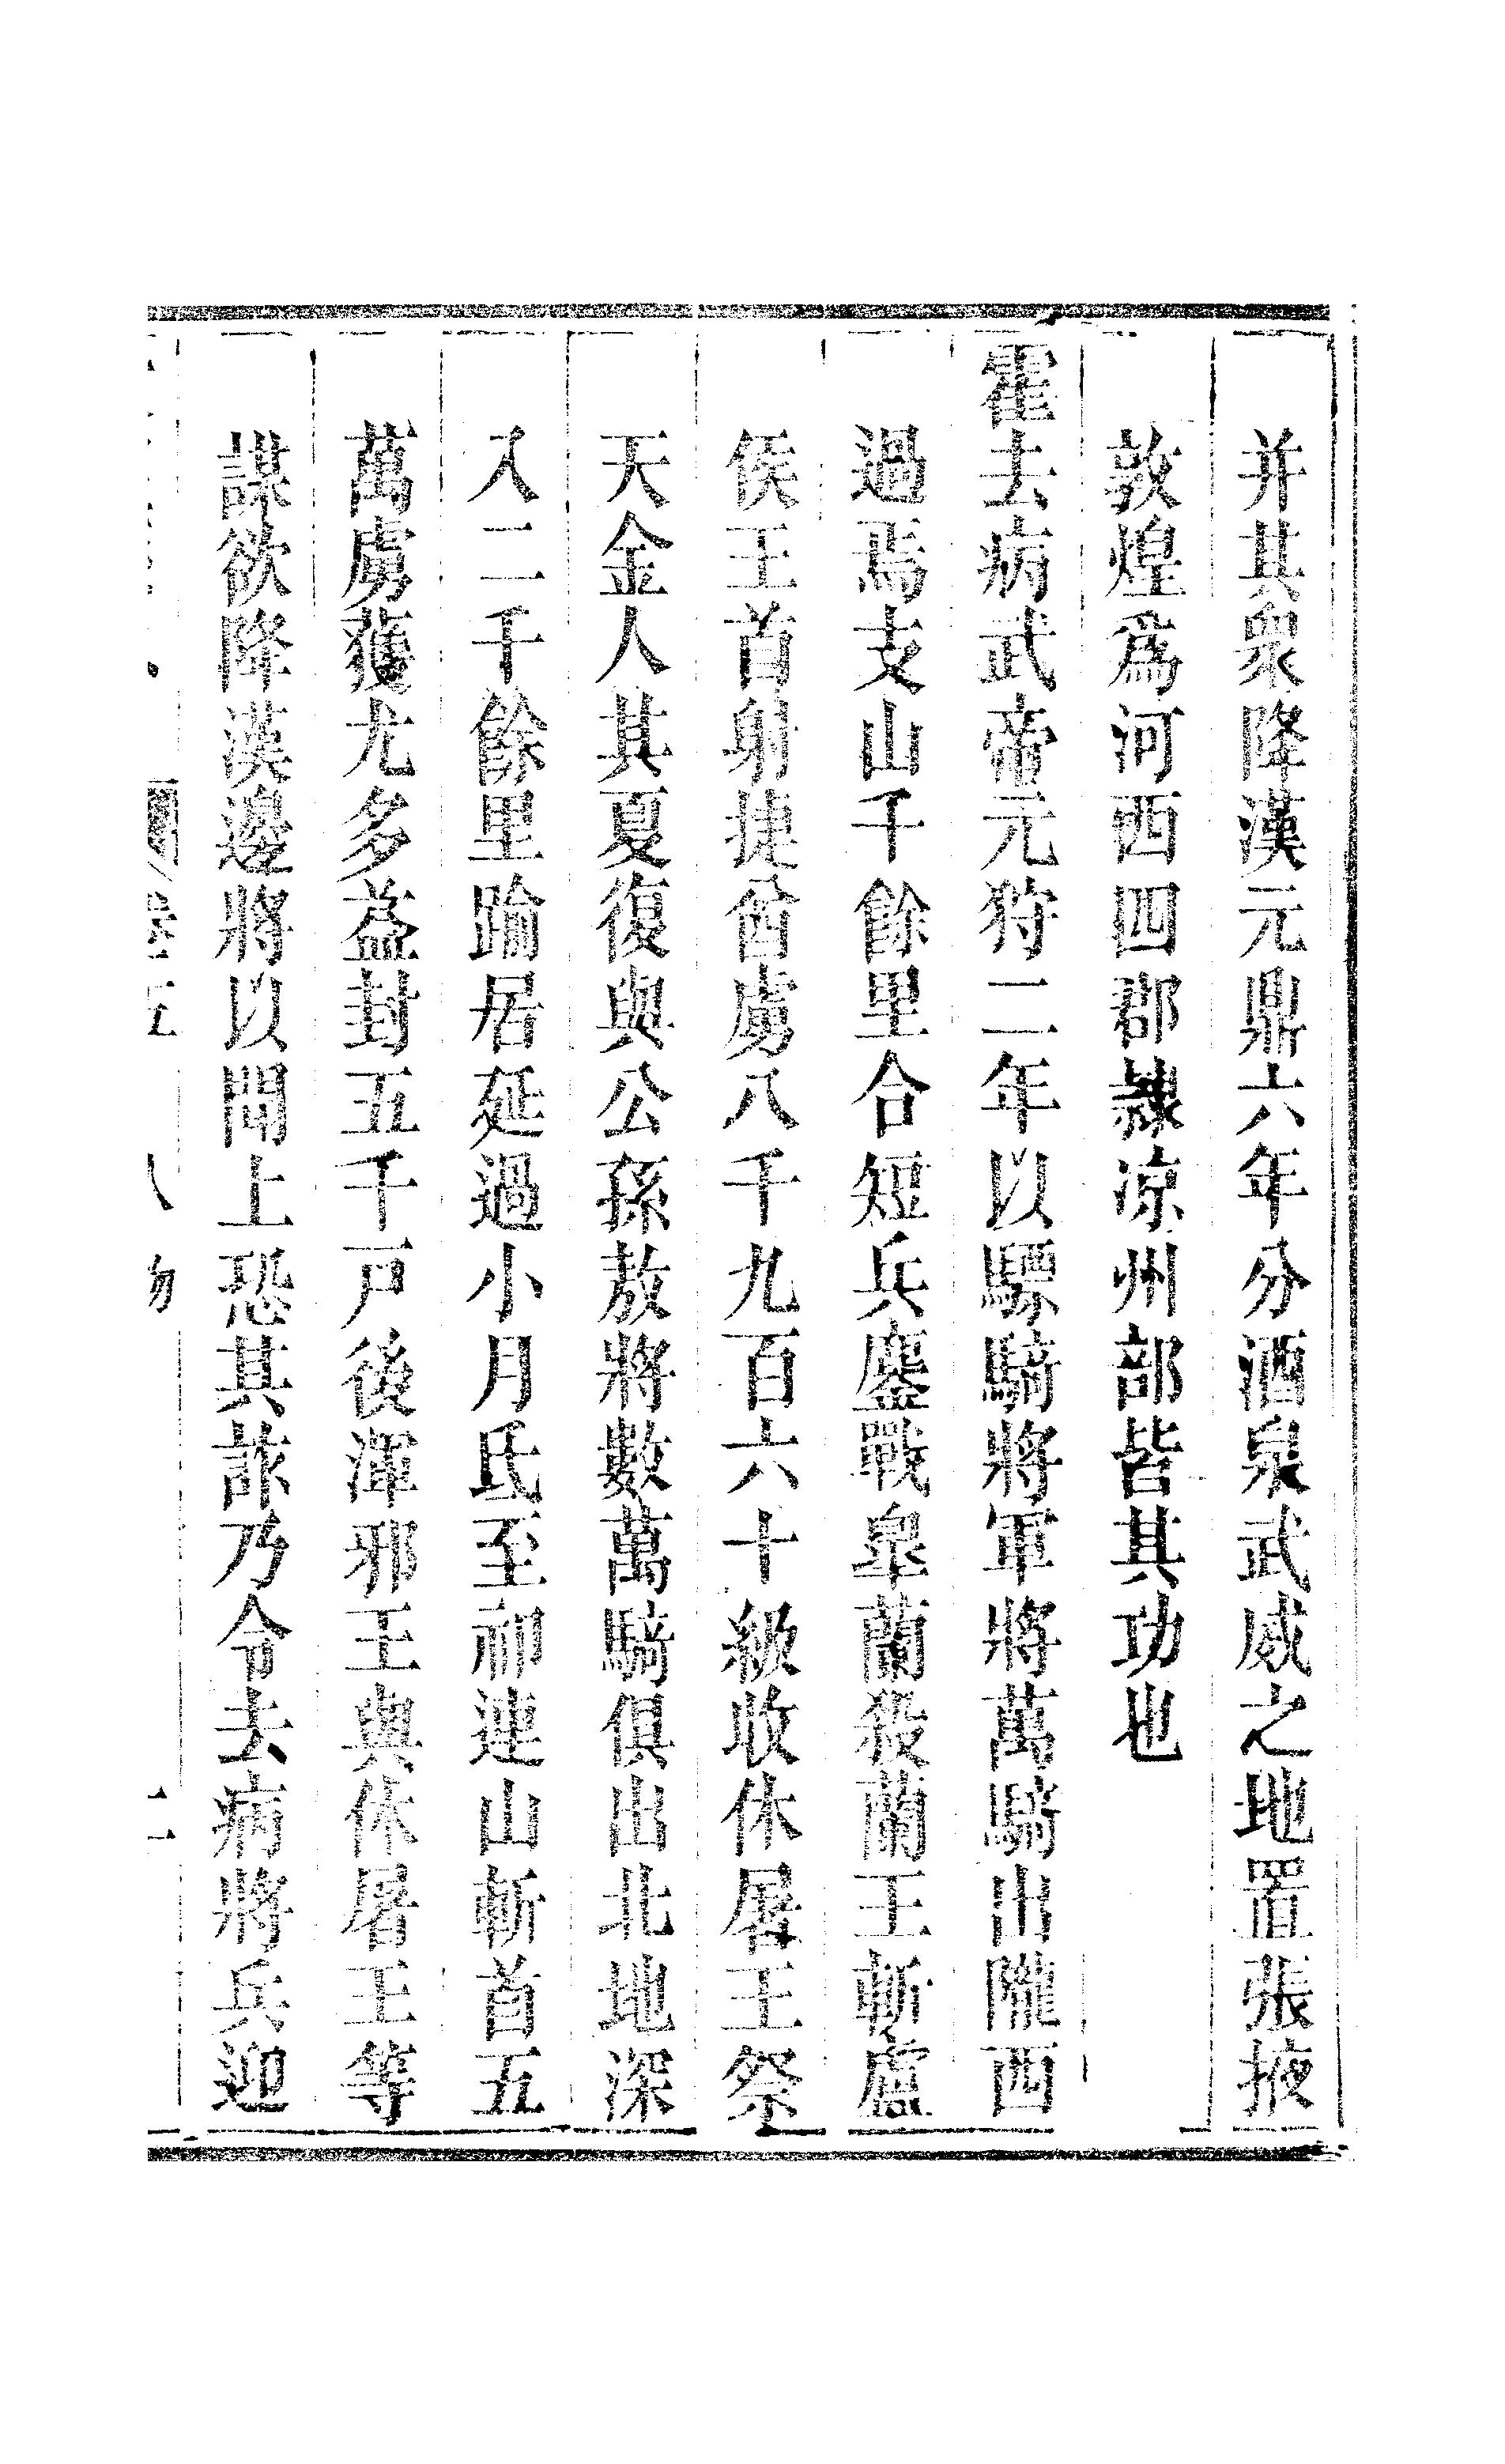 并其衆降漢元鼎六年分酒泉武威之地置張掖
敦煌爲河西四郡隷凉州部皆其功也
霍去病武帝元狩二年以驃騎將軍將萬騎出隴西
過焉支山千餘里合短兵鏖戰臯蘭殺蘭王斬盧
侯王首射捷酋虜八千九百六十級收休屠王祭
天金人其夏復與公孫敖將數萬騎俱出北地深
入二千餘里踰居延過小月氏至祁連山斬首五
萬虜獲尤多益封五千戸後渾邪王與休屠王等
謀欲降漢邊將以聞上恐其詐乃令去病將兵迎